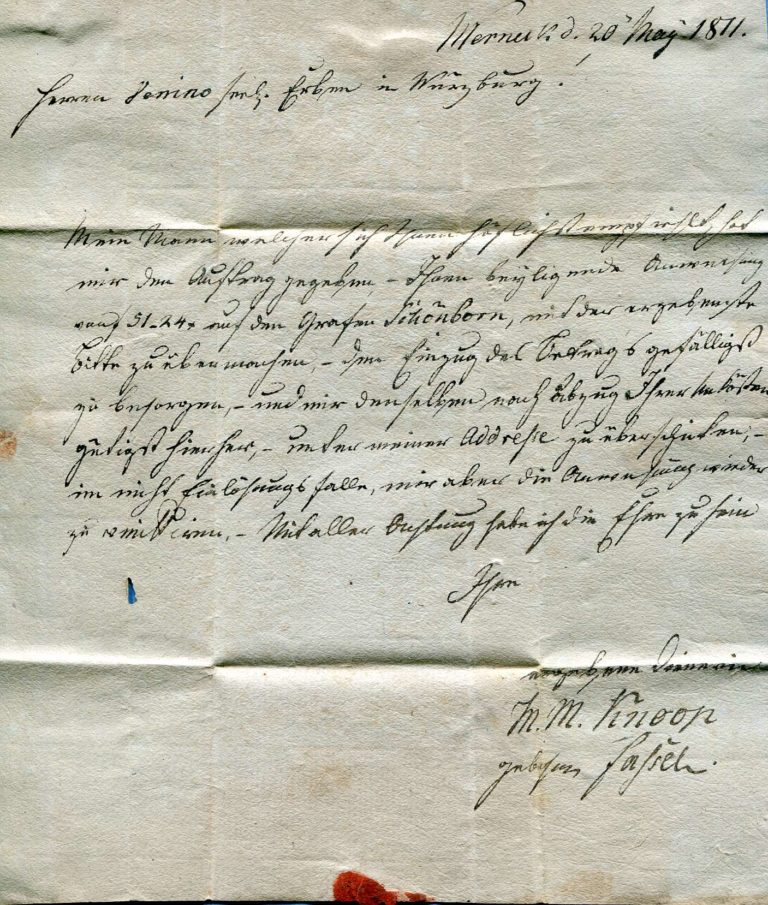 Werneck d. 20 May 1811.
Herren Venino seel. Erben in Würzburg.
Mein Mann welcher sich Ihnen höflichst empfiehlt, hat
mir den Auftrag gegeben, – Ihnen beyligende Anweisung
von f 51-24x auf den Grafen Schönborn, mit der ergebenste
Bitte zu übermachen, – den Einzug des Betrags gefälligst
zu besorgen, – und mir denselben nach Abzug Ihrer Unkösten
gütigst hierher, – unter meiner Addresse zu überschicken, –
im nicht Einlösungs falle, mir aber die Anweisung wieder
zu remittiren, – Mit aller Achtung habe ich die Ehre zu sein
Ihre
ergebene Dienerin
M. M. Knoop
gebohrne